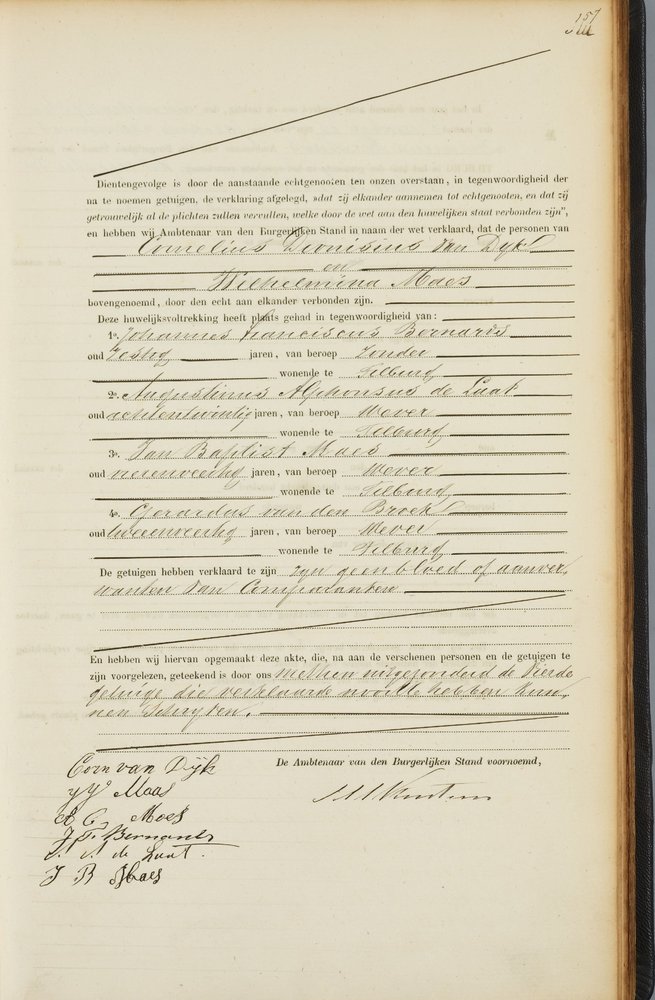 157
Dientengevolge is door de aanstaande echtgenooten ten onzen overstaan, in tegenwoordigheid der
na te noemen getuigen, de verklaring afgelegd, »dat zij elkander aannemen tot echtgenooten, en dat zij
getrouwelijk al de plichten zullen vervullen, welke door de wet aan den huwelijken staat verbonden zijn",
en hebben wij Ambtenaar van den Burgerlijken Stand in naam der wet verklaard, dat de personen van
Cornelius Dionisius van Dijk
en
Wilhelmina Maes
bovengenoemd, door den echt aan elkander verbonden zijn.
Deze huwelijksvoltrekking heeft plaats gehad in tegenwoordigheid van:
1o. Johannes Franciscus Bernards
oud zestig jaren, van beroep zonder
wonende te Tilburg
2o. Augustinus Alphonsus de Laat
oud achtentwintig jaren, van beroep Wever
wonende te Tilburg
3o. Jan Baptist Maes
oud jaren, van beroep Wever
wonende te Tilburg
4o. Gerardus van den Broek
oud tweenveertig jaren, van beroep Wever
wonende te Tilburg
De getuigen hebben verklaard te zijn zijn geen bloed of aanver,
wanten van Comparanten
En hebben wij hiervan opgemaakt deze akte, die, na aan de verschenen personen en de getuigen te
zijn voorgelezen, geteekend is door ons met hen uitgezonderd de vierde
getuige die verklaarde nooit te hebben kun,
nen Schrijven.
De Ambtenaar van den Burgerlijken Stand voornoemd,
Corn van Dijk
Maas
Maes
J F Bernards
de Laat
J B Maes